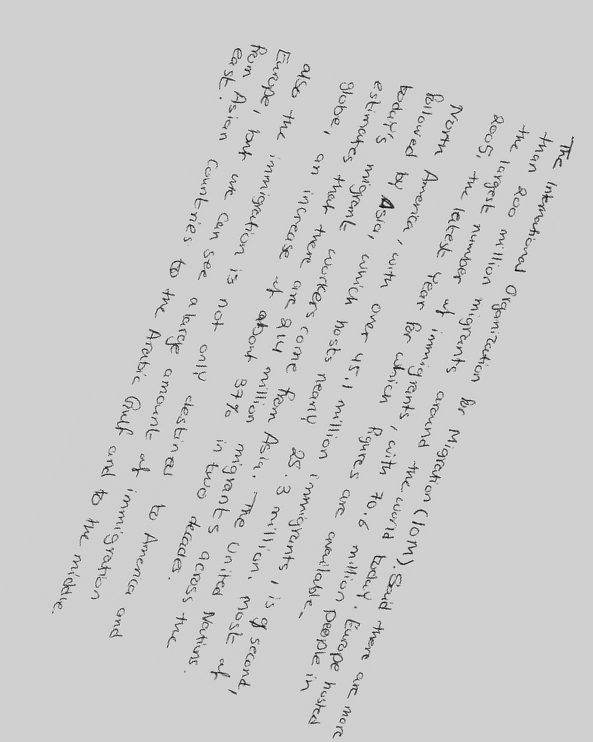 The International Organization for Migration (IOM). Said there are more
than 200 million migrants around the world today. Europe hosted
the largest number of immigrants, with 70.6 million people in
2005, the latest year for which figures are available.
North America, with over 45.1 million immigrants, is second,
followed by Asia, which hosts nearly 25.3 million. Most of
today's migrant workers come from Asia. The United Nations
estimates that there are 214 million migrants across the
globe, an increase of about 37% in two decades.
also the immigration is not only destined to America and
Europe, but we can see a large amount of immigration
from Asian countries to the Arabic Gulf and to the middle
east.